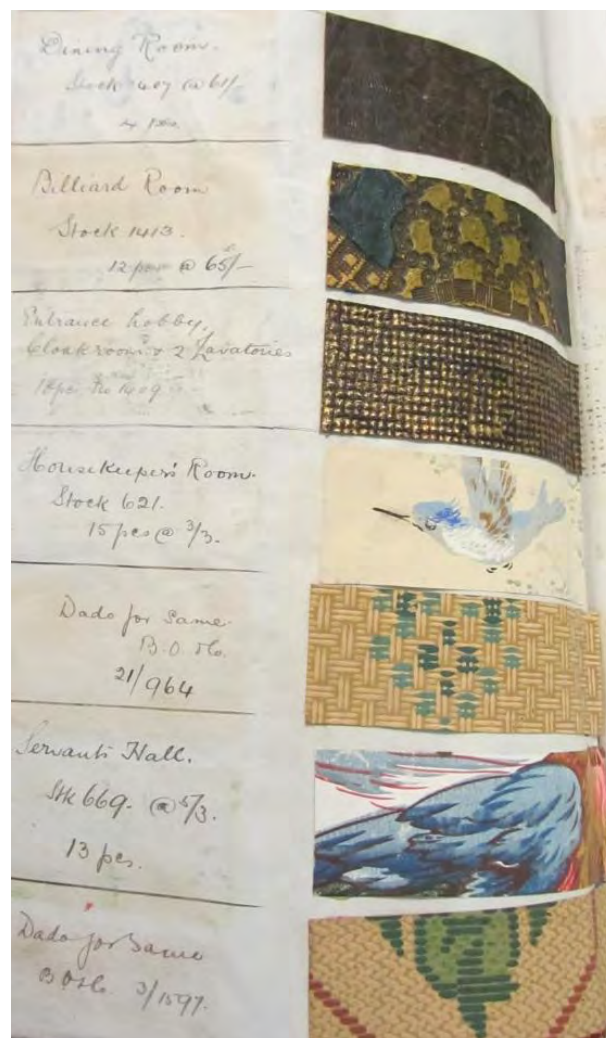 Dining Room.
Stock 407 @ 61/
Billiard Room
Stock 1413.
12 pcs @ 65/-
Entrance Lobby,
Cloakroom & 2 Lavatories
18pc No 1409
Housekeeper's Room.
Stock 621.
15 pcs @ 3/3.
Dado for Same.
B.O.
21/964
Servants Hall.
Stk 669. @ 5/3.
13 pcs.
Dado for Same
3/1597.